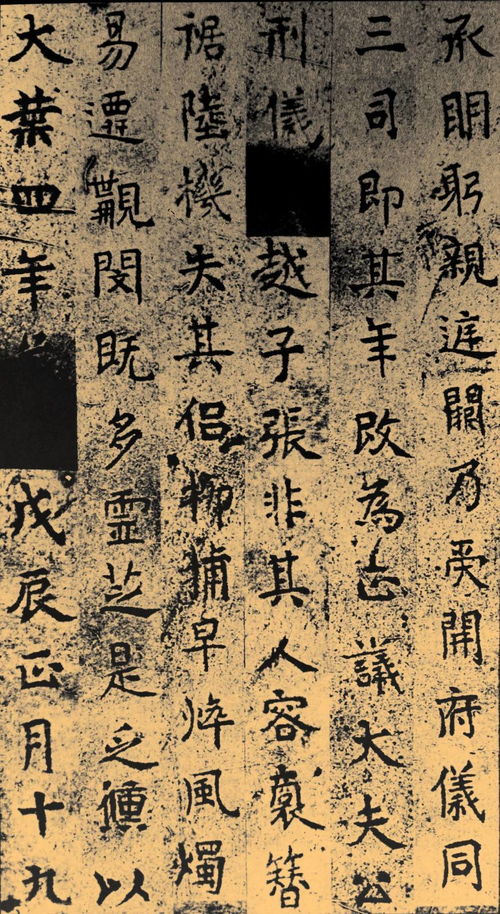 承明躬親庭闕乃受開府儀同
三司即其年改為正議大夫公
刑儀越子張非其人容裦簪
裾陸機失其侶柳早焠風燭
易遷觀閔既多靈芝是乏種以
大葉四年戊辰正月十九